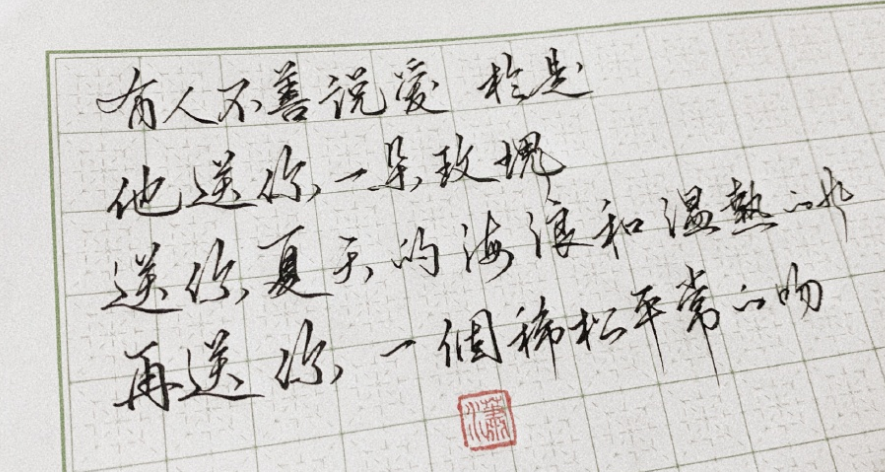 有人不善说爱 於是
他送你一朵玫瑰
送你夏天的海浪和温熱的吻
再送你一個稀松平常的吻
瀟